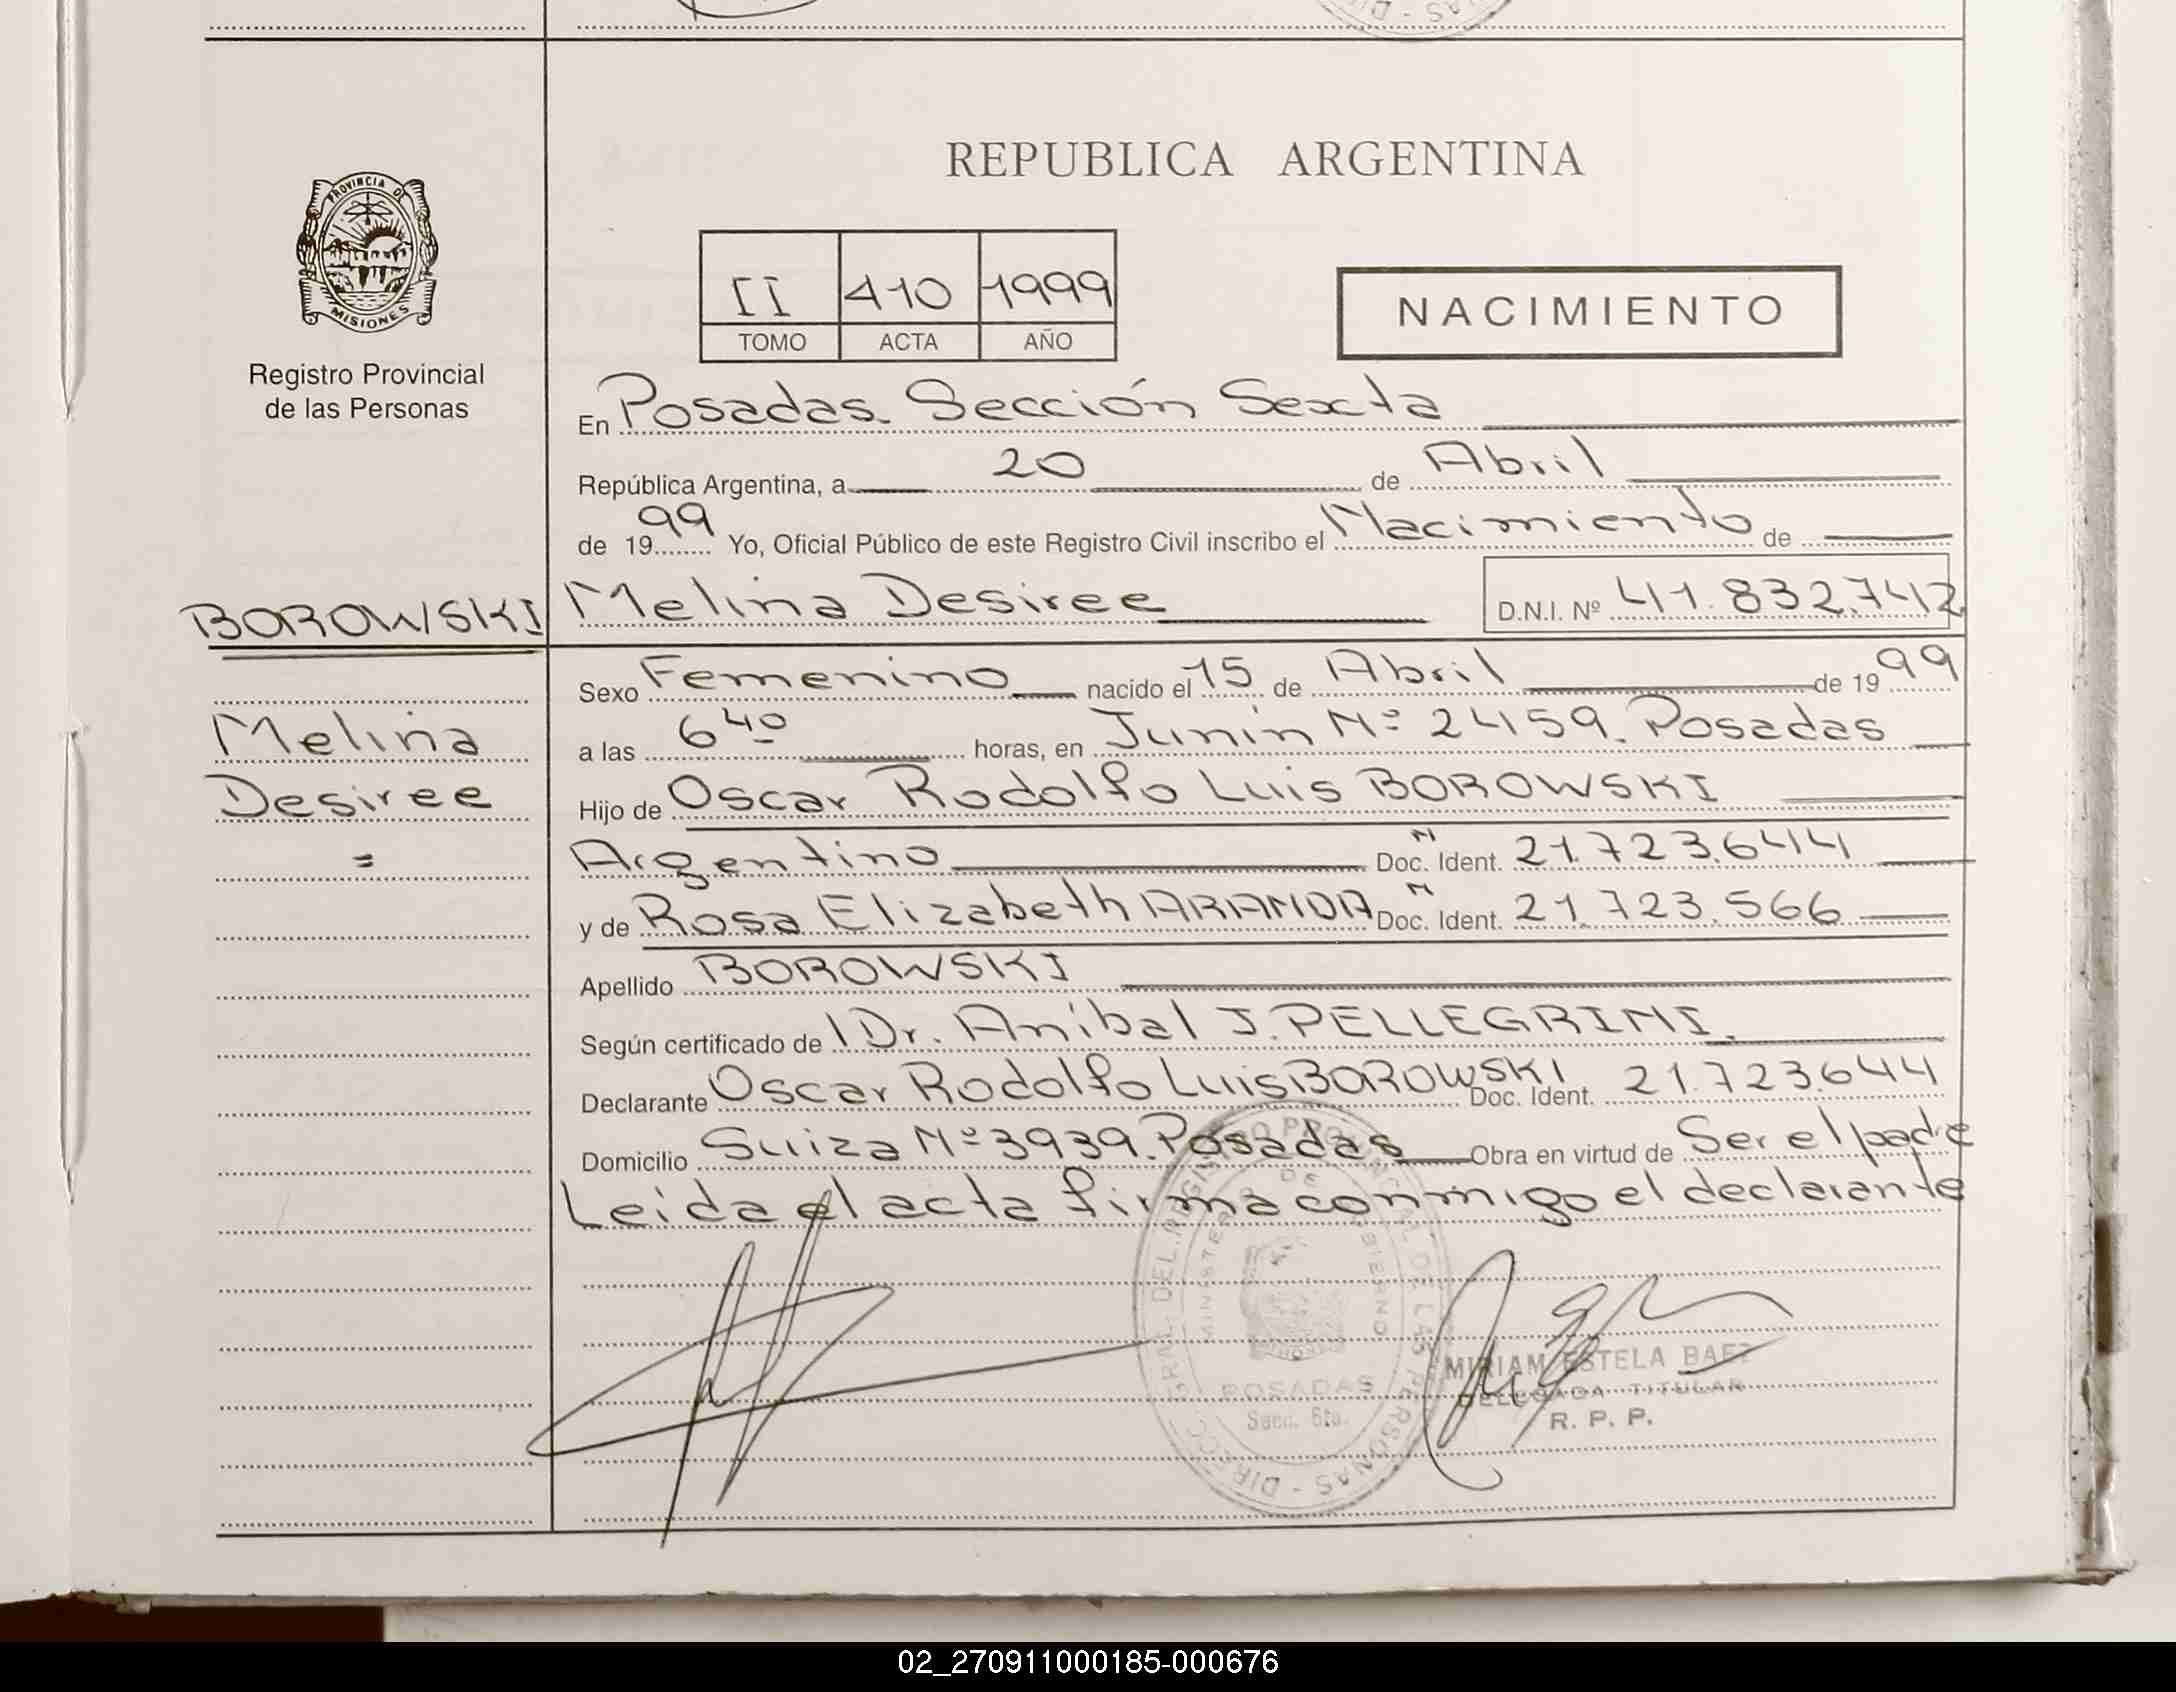 REPUBLICA ARGENTINA
PROVINCIA DE
MISIONES
Registro Provincial
de las Personas
II 410 1999
TOMO ACTA AÑO
NACIMIENTO
En Posadas. Sección Sexta
República Argentina, a 20 de Abril
de 1999 Yo, Oficial Público de este Registro Civil inscribo el Nacimiento de
BOROWSKI Melina Desiree D.N.I. Nº 41.832.742
Sexo Femenino nacido el 15 de Abril de 1999
Melina
a las 6 40 horas, en Junin Nº 2459. Posadas
Desiree
Hijo de Oscar Rodolfo Luis BOROWSKI
=
Argentino Doc. N Ident. 21.723.644
y de Rosa Elizabeth ARANDA Doc. N Ident. 21.723.566
Apellido BOROWSKI
Según certificado de l Dr. Aníbal J. PELLEGRINI.
Declarante Oscar Rodolfo Luis BOROWSKI Doc. Ident. 21.723.644
Domicilio Suiza Nº 3939. Posadas Obra en virtud de Ser el padre
Leida el acta firma conmigo el declarante
DIRECC. GRAL. DEL REGISTRO PROVINCIAL DE LAS PERSONAS -
MINISTERIO DE GOBIERNO
POSADAS
Secc. 6ta.
MIRIAM ESTELA BAEZ
DELEGADA TITULAR
R. P. P.
02_270911000185-000676